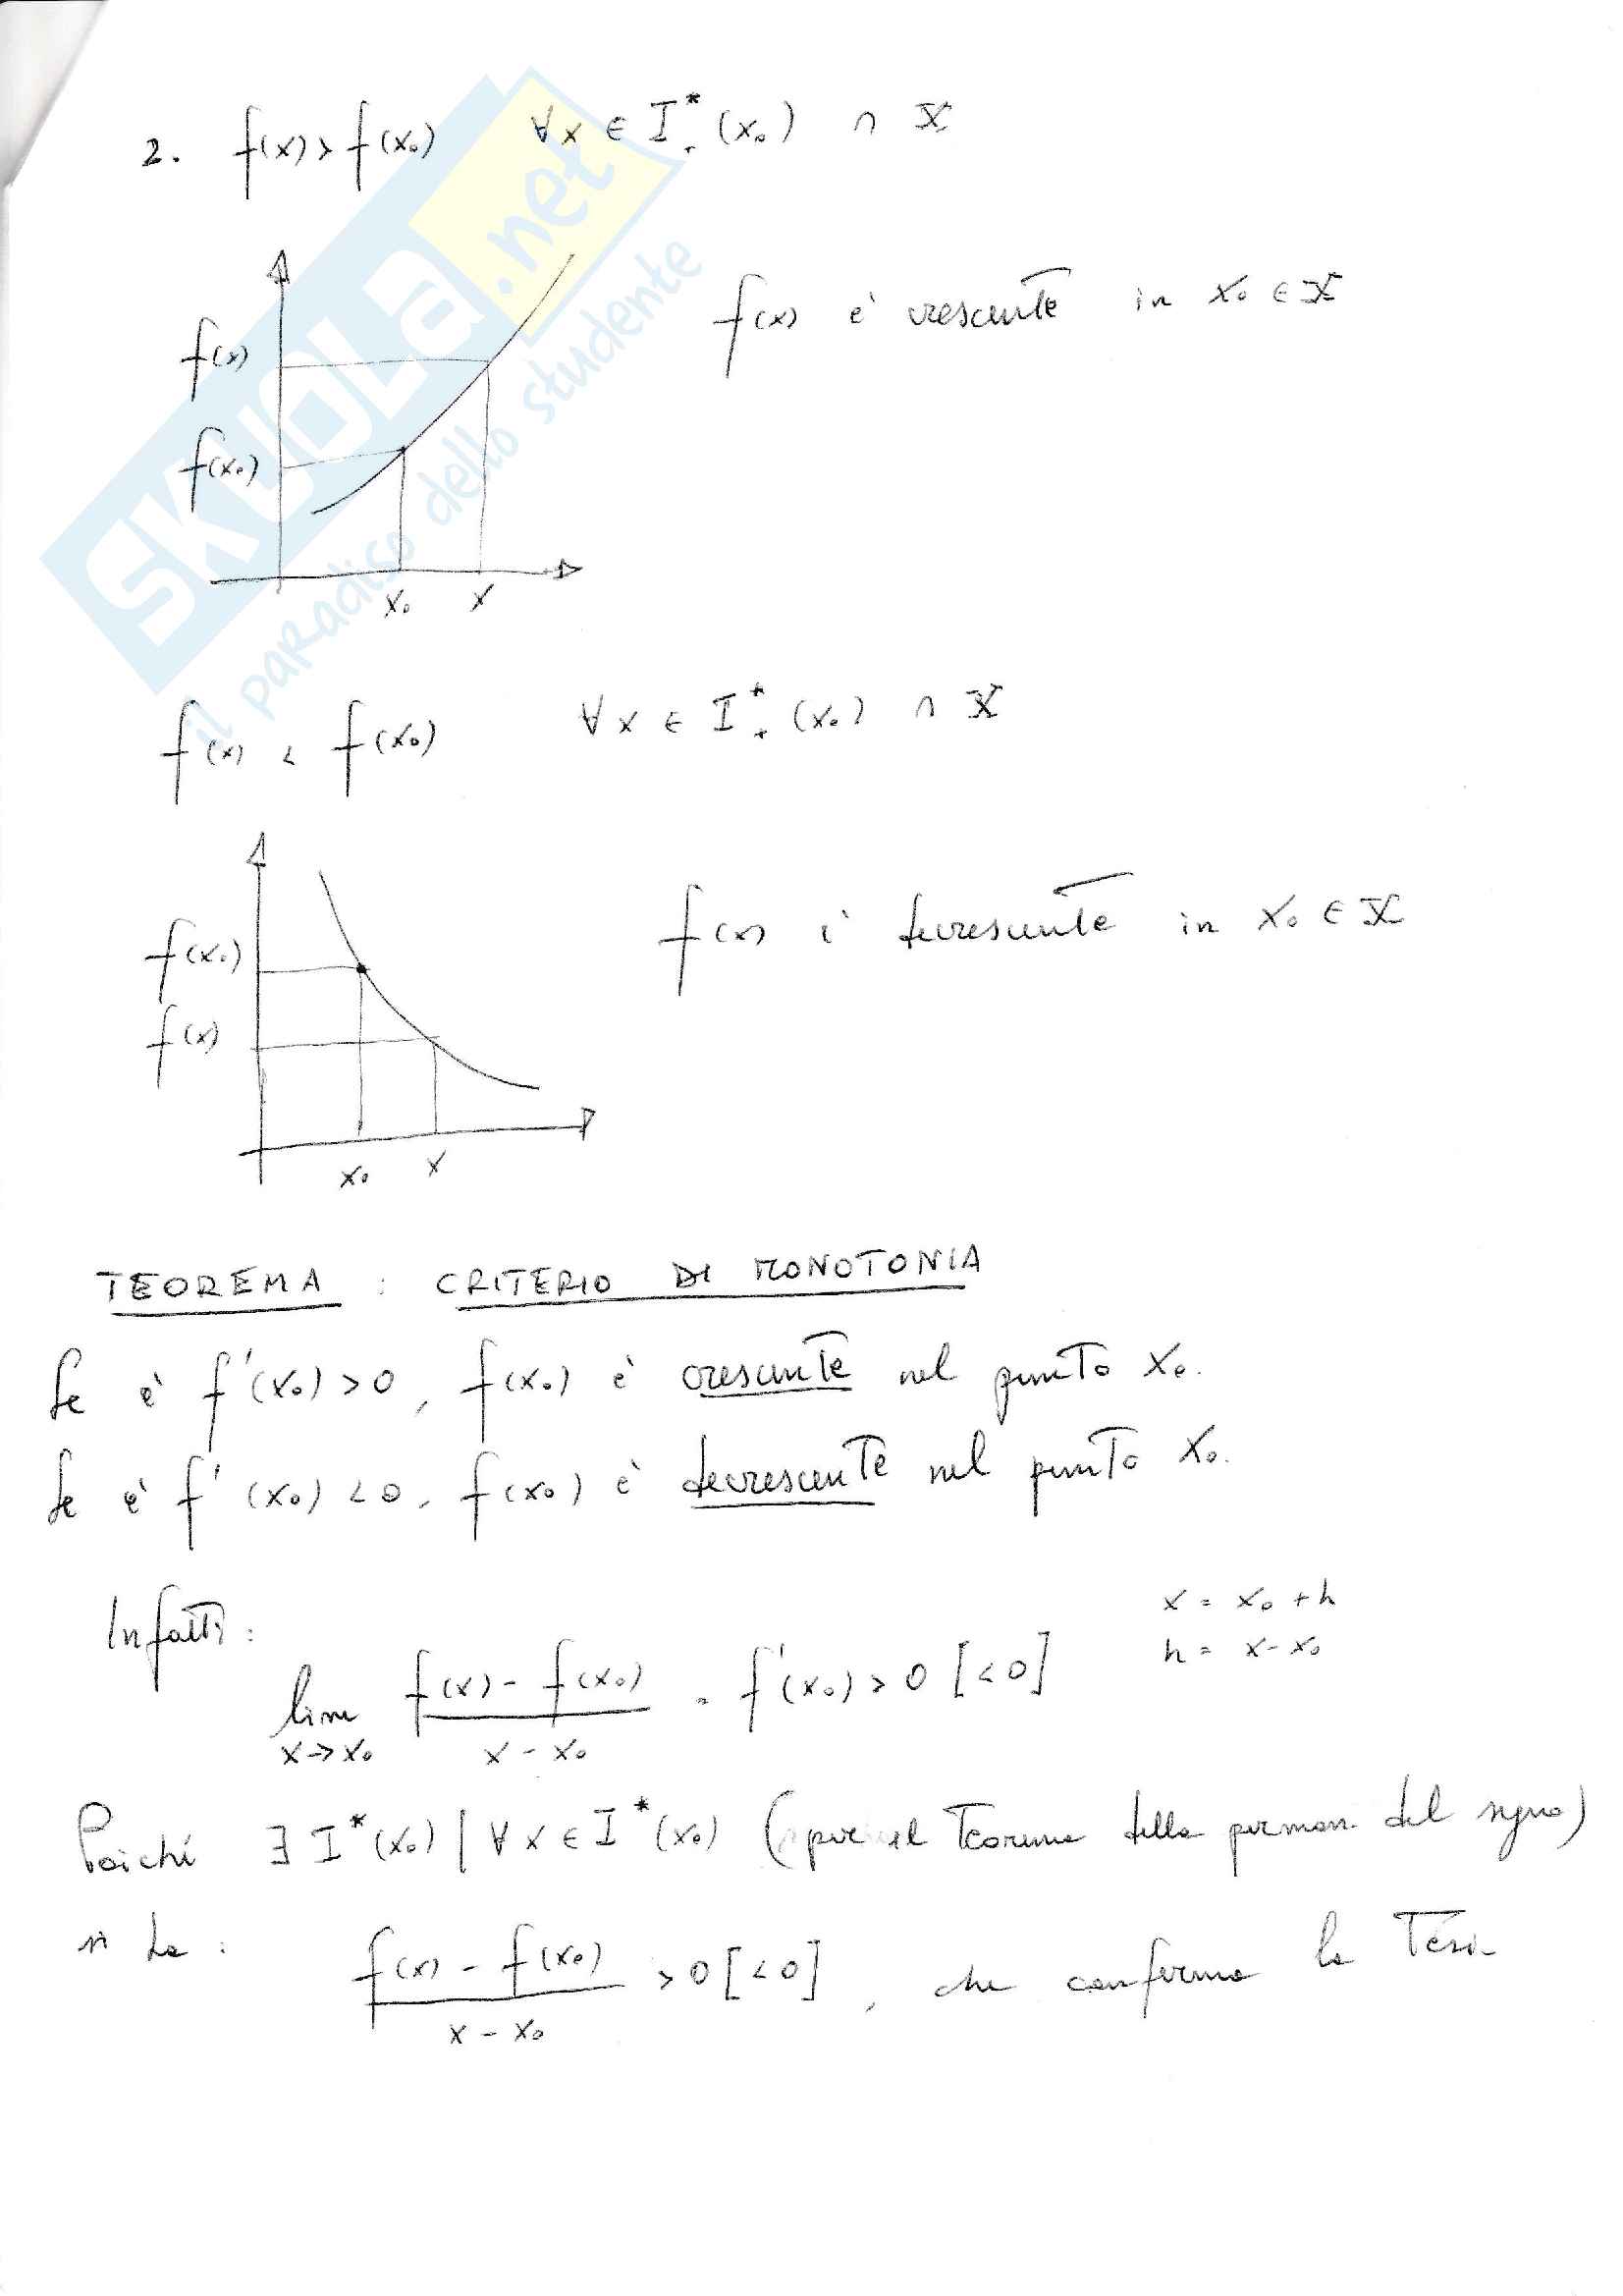 2. f(x) > f(x₀) ∀ x ∈ I*₊(x₀) ∩ X
f(x) è crescente in x₀ ∈ X
f(x)
f(x₀)
x₀ x
f(x) < f(x₀) ∀ x ∈ I*₊(x₀) ∩ X
f(x) è decrescente in x₀ ∈ X
f(x₀)
f(x)
x₀ x
TEOREMA : CRITERIO DI MONOTONIA
Se è f'(x₀) > 0, f(x₀) è crescente nel punto x₀.
Se è f'(x₀) < 0, f(x₀) è decrescente nel punto x₀.
Infatti:
x = x₀ + h
h = x - x₀
lim x→x₀ (f(x) - f(x₀)) / (x - x₀) = f'(x₀) > 0 [<0]
Poiché ∃ I*(x₀) | ∀ x ∈ I*(x₀) (per il Teorema della perman. del segno)
si ha :
(f(x) - f(x₀)) / (x - x₀) > 0 [<0], che conferma la Tesi
SKUOLA.net
il paradiso dello studente